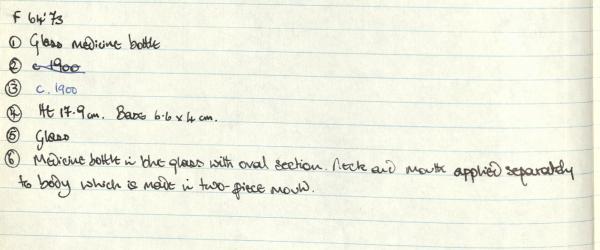 F 64'73
① Glass medicine bottle
② ~~c 1900~~
③ c. 1900
④ Ht 17.9cm. Base 6.6 x 4 cm.
⑤ Glass
⑥ Medicine bottle in blue glass with oval section. Neck and mouth applied separately
to body which is made in two-piece mould.